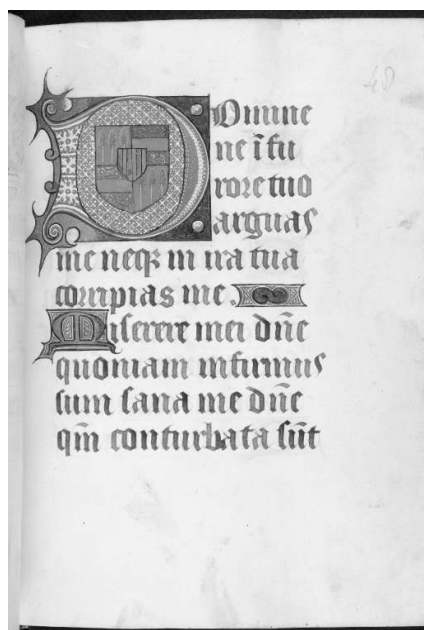 48
Domine
ne ĩ fu
rore tuo
arguas
me neqꝫ in ira tua
corripias me.
Miserere mei dñe
quoniam infirmus
sum sana me dñe
qm̃ conturbata sũt